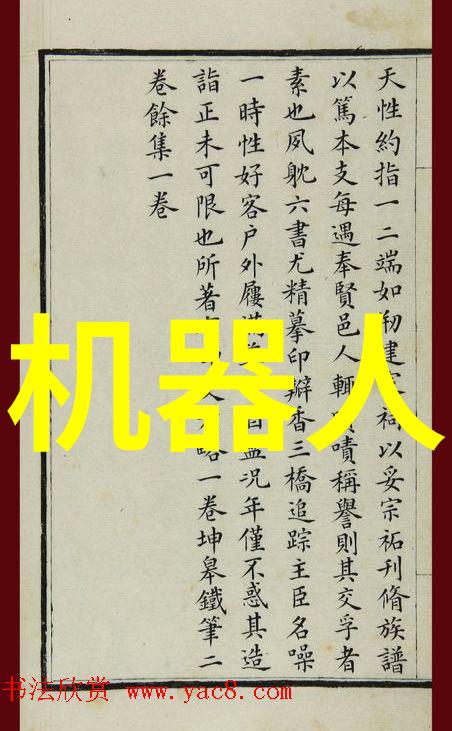 天性約指一二端如建祠以妥宗祏刊脩族譜
以篤本支每遇奉賢邑人輒嘖稱譽則其交孚者
素也夙躭六書尤精摹印瓣香三橋追踪主臣名噪
一時性好客户外屨满盈况年僅不惑其造
詣正未可限也所著人略一卷坤皋鐵筆二
卷餘集一卷
机器人
书法欣赏 www.yac8.com